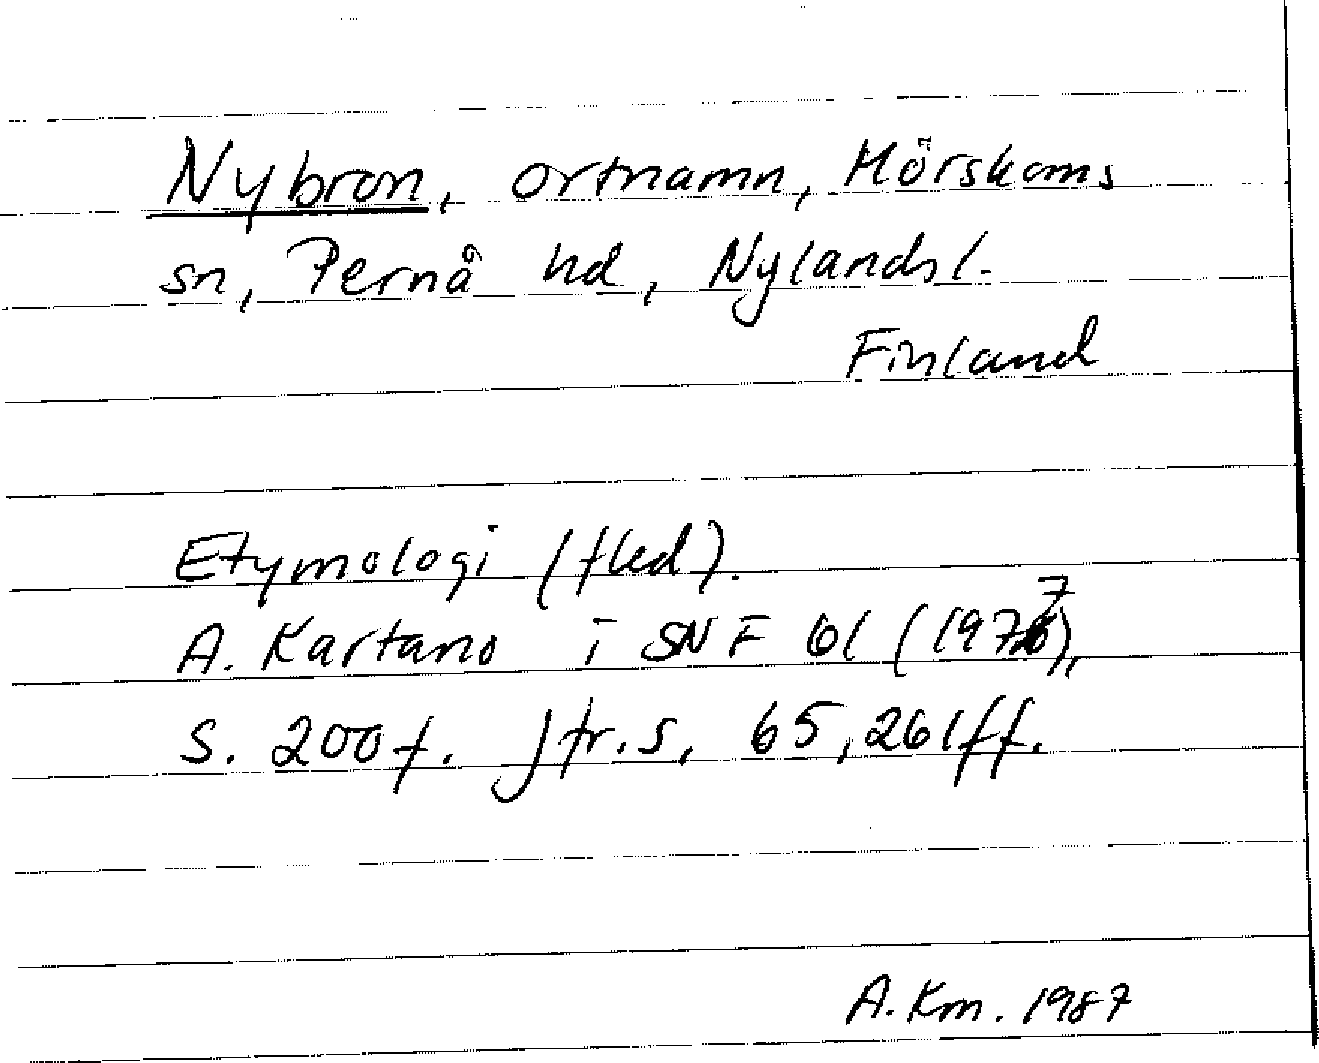 Nybron, ortnamn, Mörskoms
sn, Pernå hd, Nylandsl.
Finland
Etymologi (fled).
A. Kartano i SNF 61 (1977),
s. 200 f. Jfr. s. 65, 261 ff.
A. Km. 1987